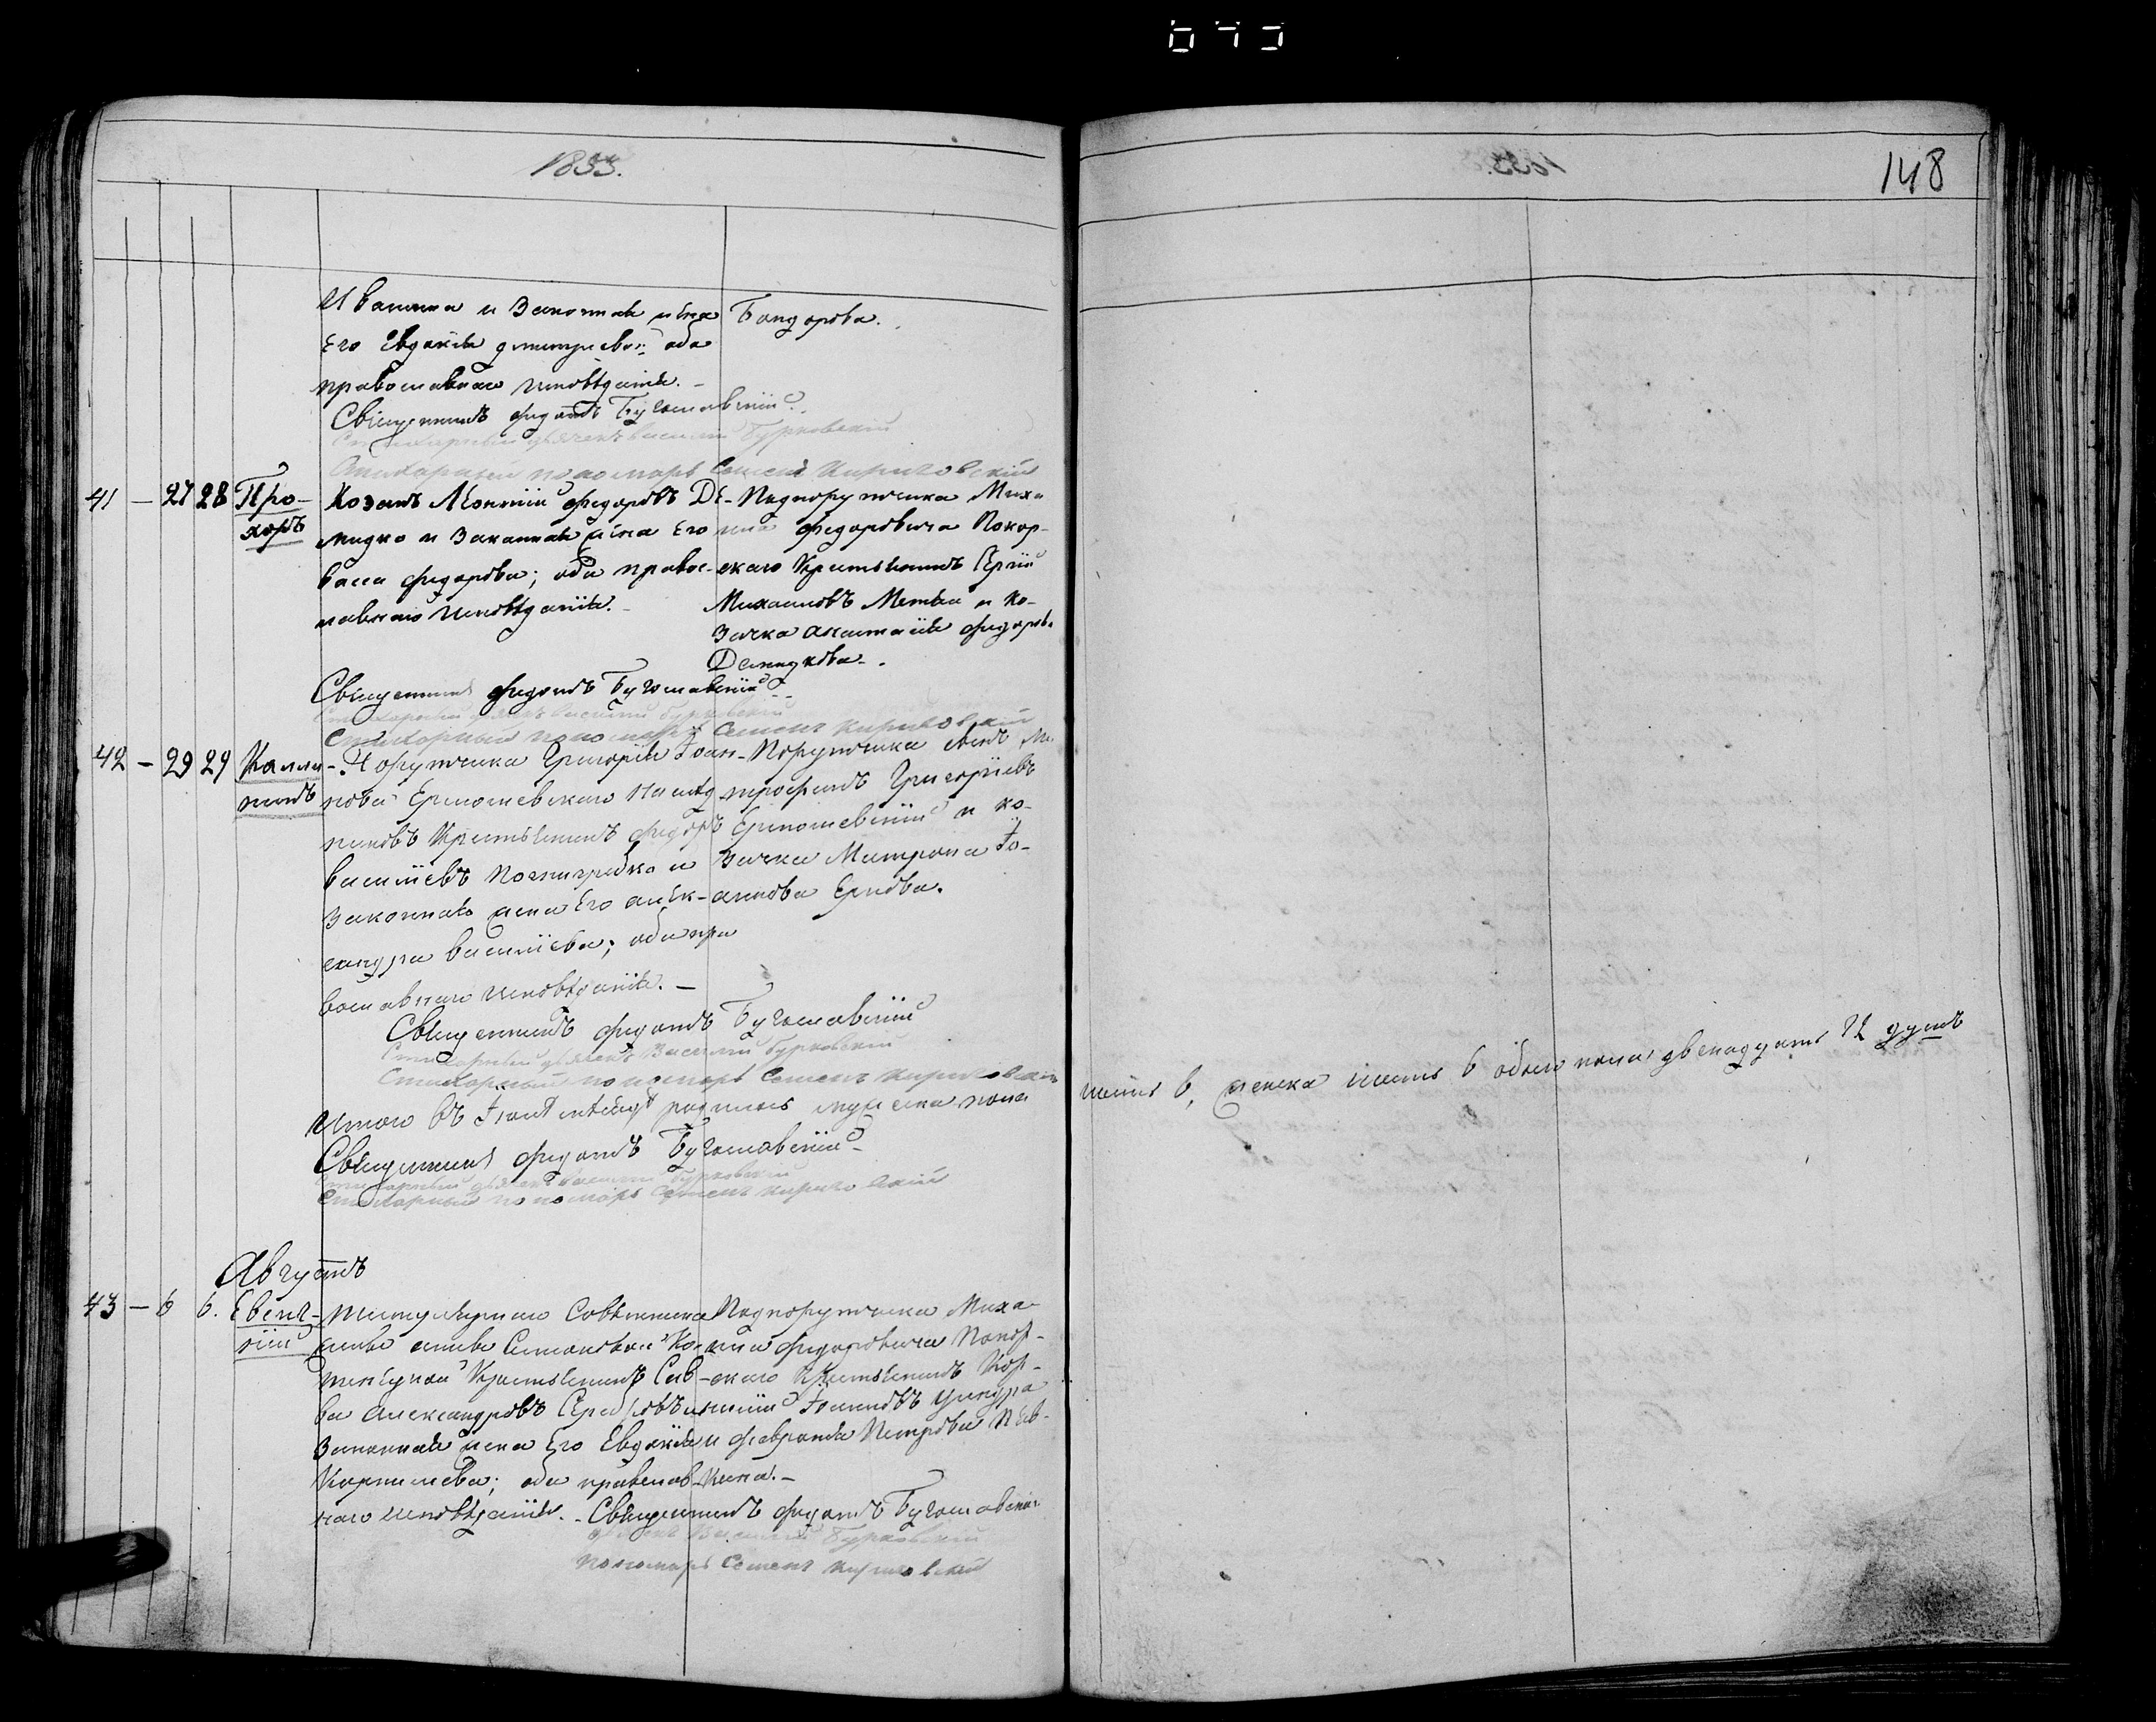 1855.
148
Иванна и законная жена
Его Евдокія Димитріева; оба
православнаго исповѣданія. –
Бондарова.
Священникъ Федотъ Богославскій
Стихарный дьячекъ Василій Бурковскій
Стихарный пономарь Семенъ Кириловскій
41 – 27 28 Про-
хоръ
Козакъ Леонтій Федоровъ Де-
мидко и законная жена Его
Васса Федорова; оба правос-
лавнаго исповѣданія. –
Подпоручика Миха
ила Федоровича Покор-
скаго Крестьянинъ Сергій
Михайловъ Метла и ко-
зачка Анастасія Федорова
Демидкова.
Священникъ Федотъ Богославскій
Стихарный дьячекъ Василій Бурковскій
Стихарный пономарь Семенъ Кириловскій
42 – 29 29 Калли-
никъ
Порутчика Григорія Іоан-
нова Ермошевскаго наслѣд
никовъ Крестьянинъ Федоръ
Василіевъ и
законная жена Его Алек-
сандра Василіева; оба пра
вославнаго исповѣданія. –
Порутчика сынъ Ми
трофанъ Григоріевъ
Ермошевскій и ко-
зачка Матрона Іо-
аннова
Священникъ Федотъ Богославскій
Стихарный дьячекъ Василій Бурковскій
Стихарный пономарь Семенъ Кириловскій
Итого въ Іюлѣ мѣсяцѣ родилось мужеска пола шесть 6, женска шесть 6 обоего пола двенадцать 12 душъ
Священникъ Федотъ Богославскій
Стихарный дьячекъ Василій Бурковскій
Стихарный пономарь Семенъ Кириловскій
Августъ
43 – 6 6. Евсиг-
ній
Титулярнаго Совѣтника
Семеновой
Крестьянинъ Сав-
ва Александровъ и
законная жена Его Евдокія
Корнилева; оба православ-
наго исповѣданія. –
Подпорутчика Миха-
ила Федоровича Покор-
скаго Крестьянинъ Кор-
нилій Іоанновъ
и Февронія Петрова
Священникъ Федотъ Богославскій
дьячекъ Василій Бурковскій
пономарь Семенъ Кириловскій